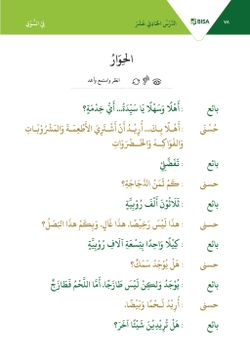 ٧٨ BISA الدَّرْسُ الْحَادِيَ عَشَرَ فِي السُّوْقِ
الحِوَارُ
انظر واستمع وأعد
بائع : أَهْلًا وَسَهْلًا يَا سَيِّدَةُ... أَيُّ خِدْمَةٍ؟
حُسْنَى : أَهْلًا بِكَ... أُرِيْدُ أَنْ أَشْتَرِيَ الْأَطْعِمَةَ وَالْمَشْرُوْبَاتِ
وَالْفَوَاكِهَ وَالْخَضْرَوَاتِ
بائع : تَفَضَّلِيْ
حسنى : كَمْ ثَمَنُ الدَّجَاجَةِ؟
بائع : ثَلَاثُوْنَ أَلْفَ رُوْبِيَّةٍ
حسنى : هٰذَا لَيْسَ رَخِيْصًا. هٰذَا غَالٍ. وَبِكَمْ هٰذَا الْبَصَلُ؟
بائع : كِيْلًا وَاحِدًا بِتِسْعَةِ آلَافِ رُوْبِيَّةٍ
حسنى : هَلْ يُوْجَدُ سَمَكٌ؟
بائع : يُوْجَدُ وَلٰكِنْ لَيْسَ طَازَجًا. أَمَّا اللَّحْمُ فَطَازَجٌ
حسنى : أُرِيْدُ لَحْمًا وَبَيْضًا.
بائع : هَلْ تُرِيْدِيْنَ شَيْئًا آخَرَ؟